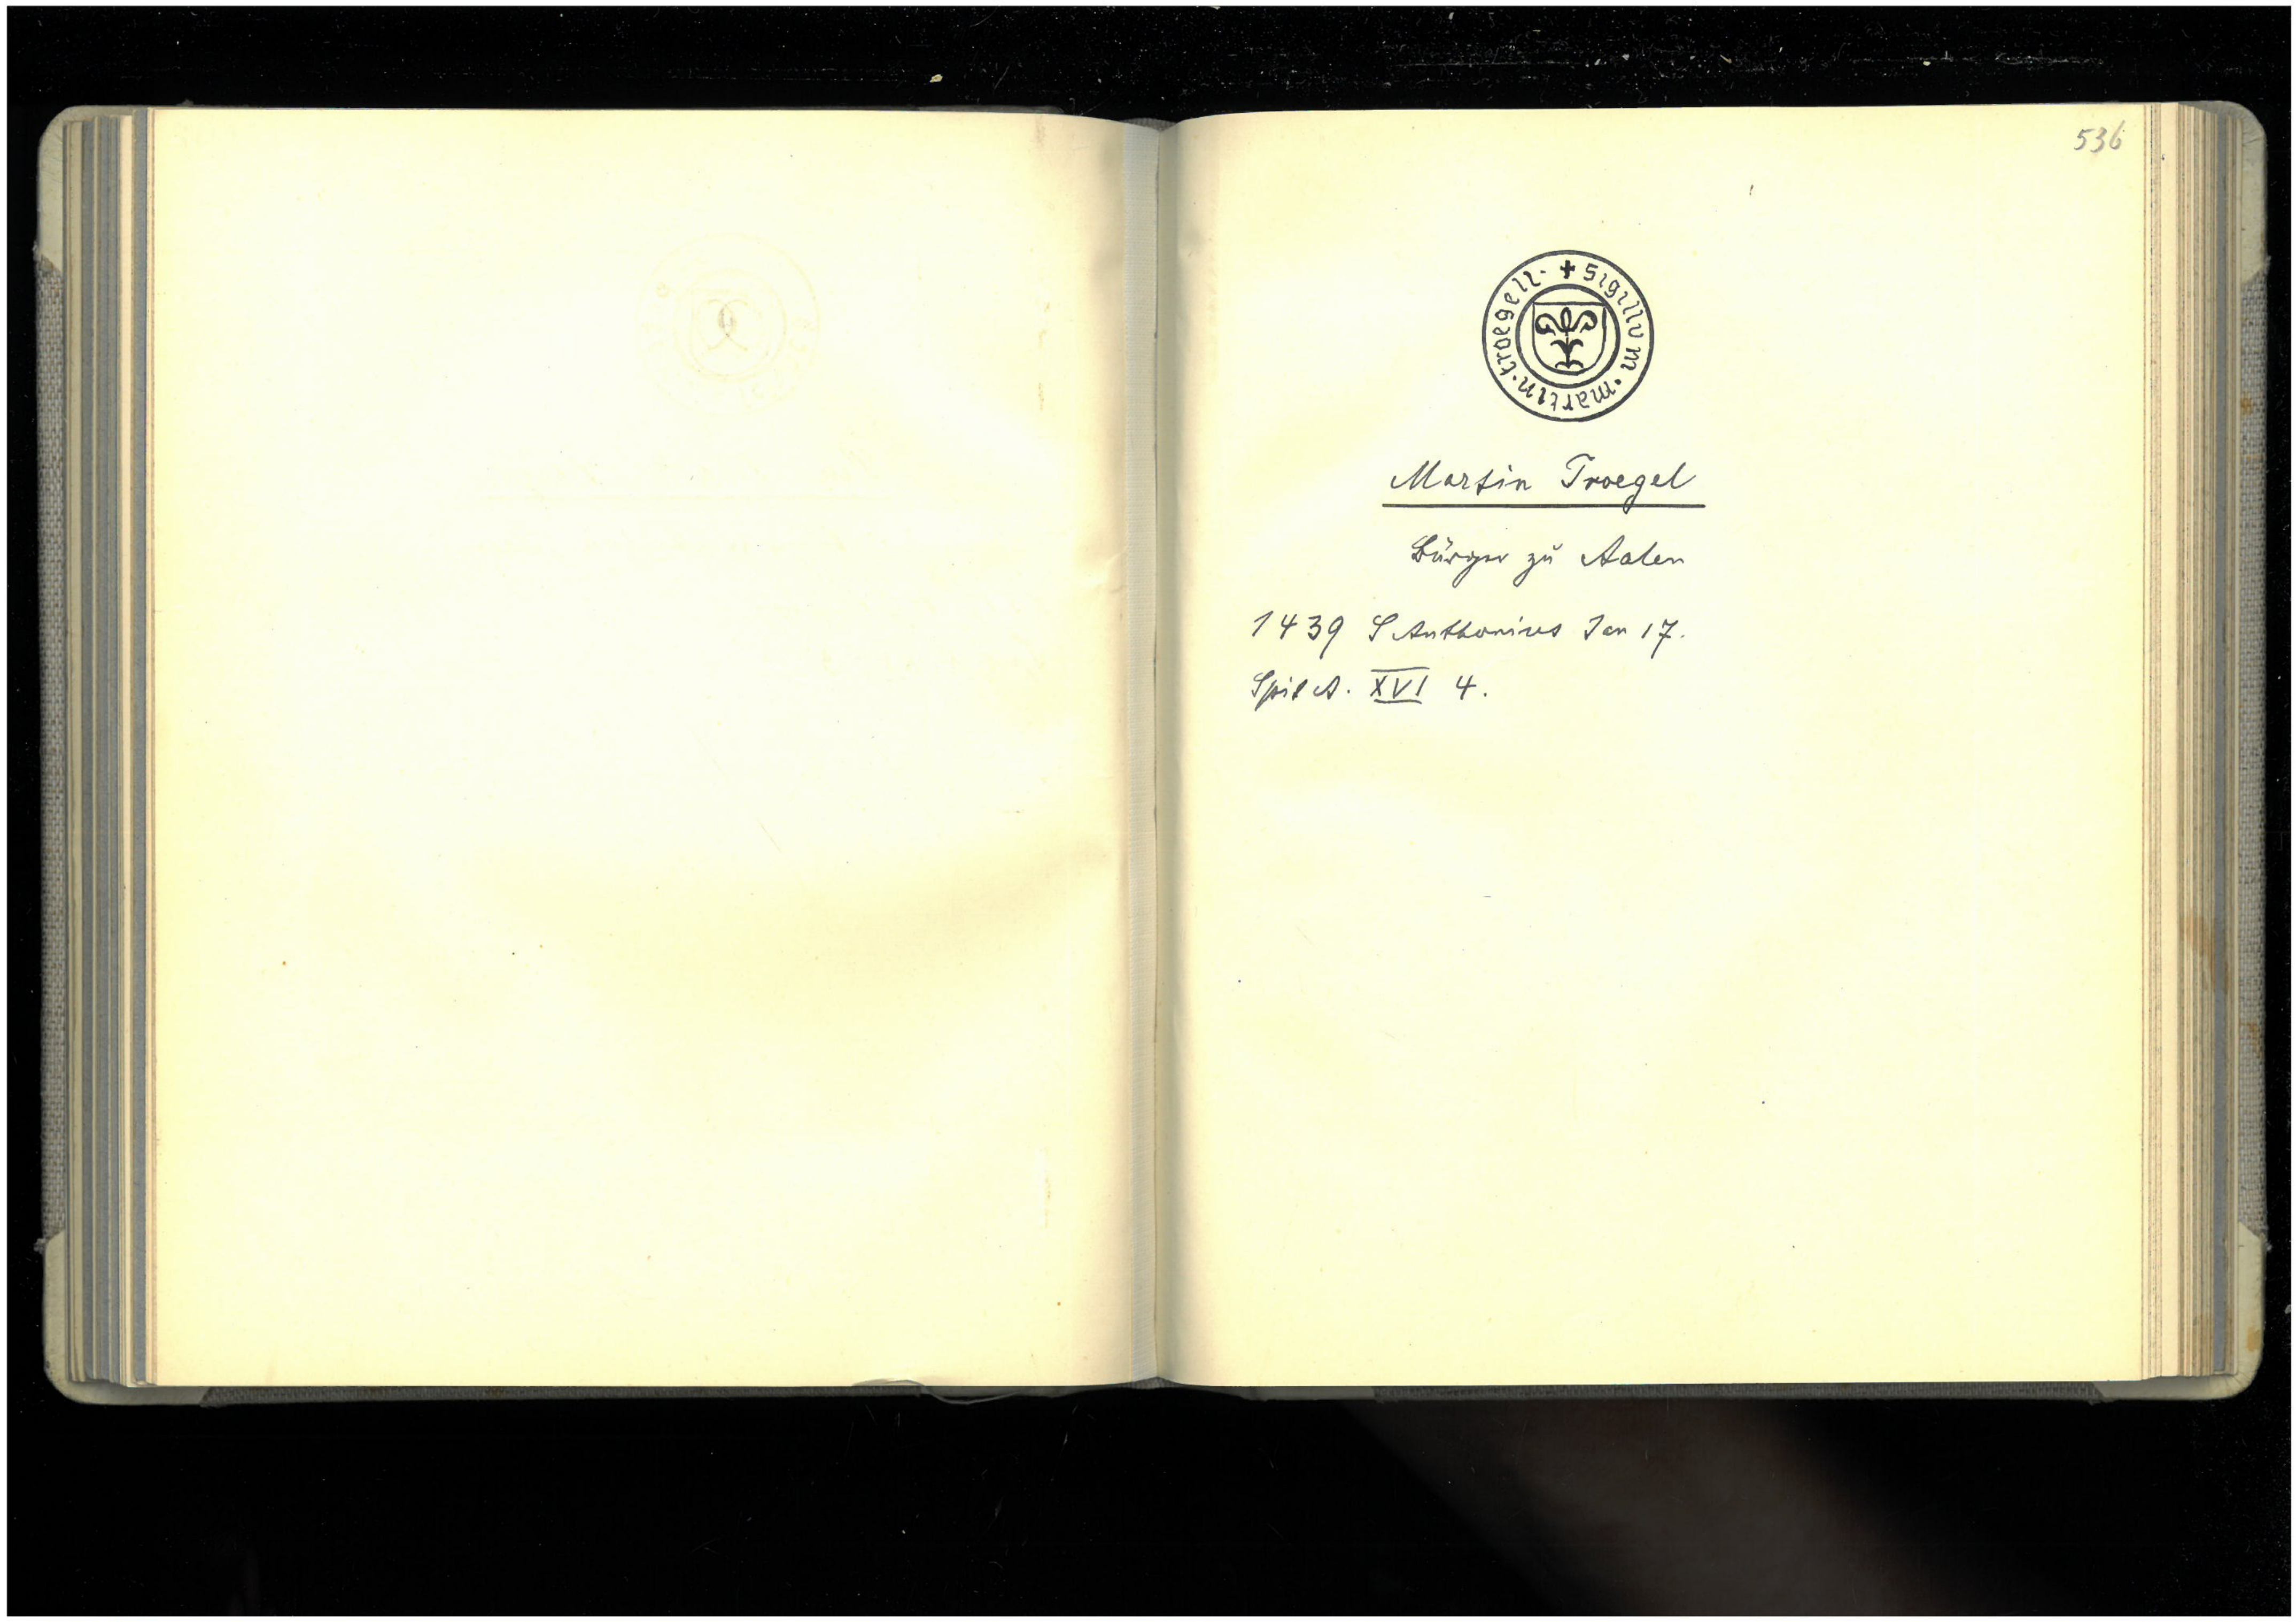 536
+ sigillvm · martin · troegell ·
Martin Troegel
Bürger zu Aalen
1439 S Anthonius Jan 17.
Spit A. XVI 4.